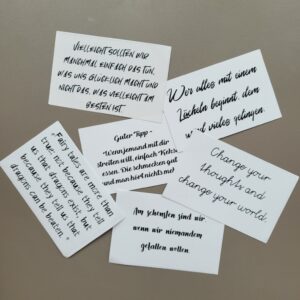 VIELLEICHT SOLLTEN WIR
MANCHMAL EINFACH DAS TUN,
WAS UNS GLÜCKLICH MACHT UND
NICHT DAS, WAS VIELLEICHT AM
BESTEN IST.
Wer alles mit einem
Lächeln beginnt, dem
wird vieles gelingen.
Guter Tipp -
Wenn jemand mit dir
streiten will, einfach Kekse
essen. Die schmecken gut
und man hört nichts
"Fairy tales are more than
true: not because they tell
us that dragons exist, but
because they tell us that
dragons can be beaten."
Change your
thoughts and
change your world.
Am schönsten sind wir
wenn wir niemandem
gefallen wollen